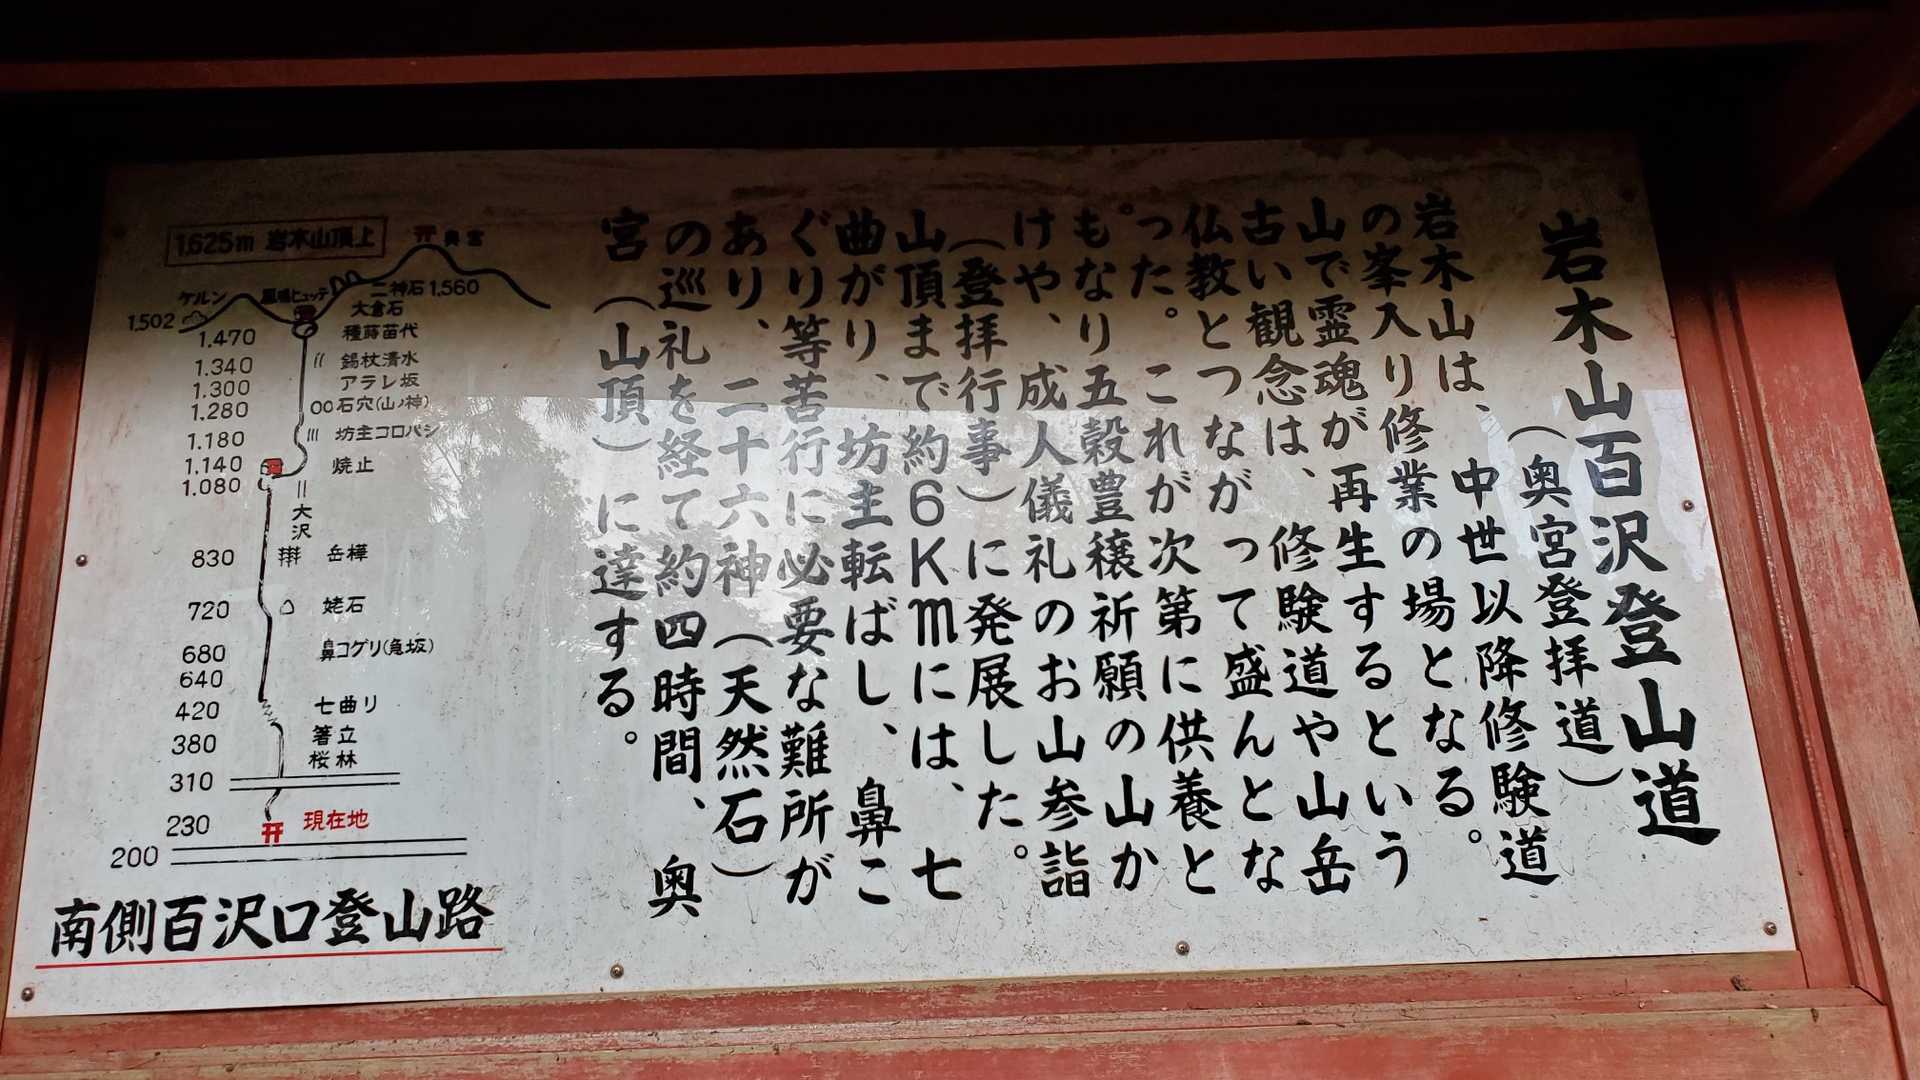 岩木山百沢登山道
(奥宮登拝道)
岩木山は、中世以降修験道
の峯入り修業の場となる。
山で霊魂が再生するという
古い観念は、修験道や山岳
仏教とつながって盛んとな
った。これが次第に供養と
もなり五穀豊穣祈願の山か
けや、成人儀礼のお山参詣
(登拝行事)に発展した。
山頂まで約6Kmには、七
曲がり、坊主転ばし、鼻こ
ぐり等苦行に必要な難所が
あり、二十六神(天然石)
の巡礼を経て約四時間、奥
宮(山頂)に達する。
1,625m 岩木山頂上
奥宮
ケルン
鳳鳴ヒュッテ
二神石1,560
1,502
大倉石
1,470 種蒔苗代
1,340 錫杖清水
1,300 アラレ坂
1,280 石穴(山ノ神)
1,180 坊主コロバシ
1,140 焼止
1,080
大沢
830 岳樺
720 姥石
680 鼻コグリ(急坂)
640
420 七曲り
380 箸立
桜林
310
230 現在地
200
南側百沢口登山路